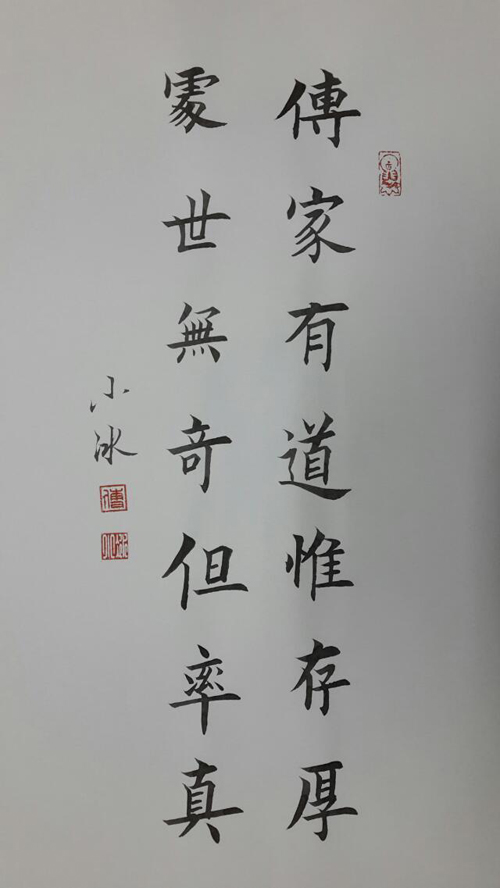 傳家有道惟存厚
處世無奇但率真
小冰